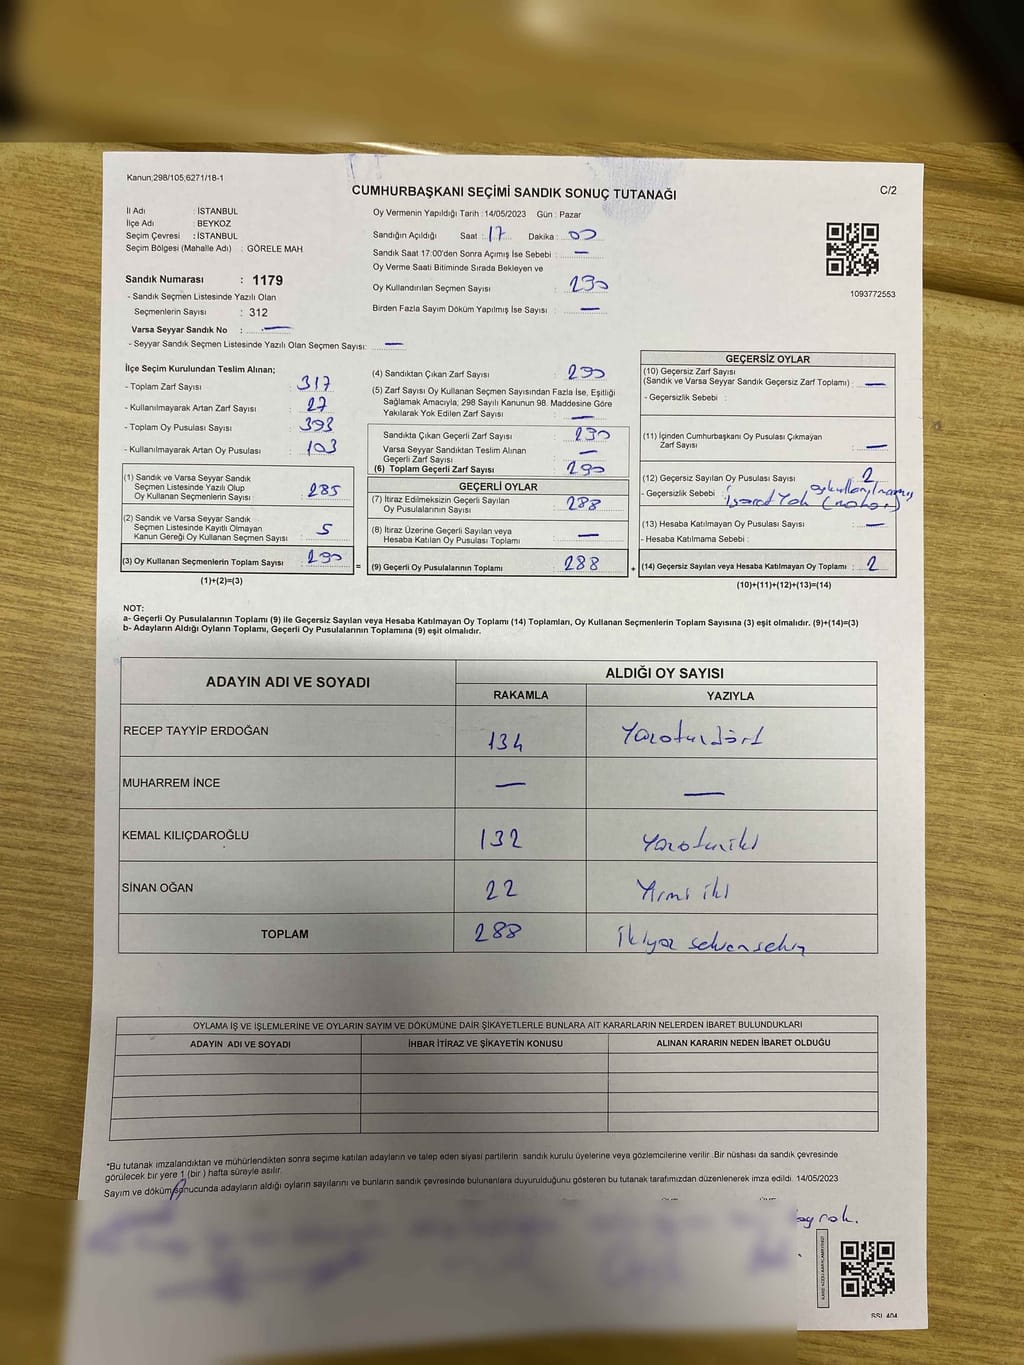 Kanun;298/105;6271/18-1
CUMHURBAŞKANI SEÇİMİ SANDIK SONUÇ TUTANAĞI
C/2
İl Adı : İSTANBUL
İlçe Adı : BEYKOZ
Seçim Çevresi : İSTANBUL
Seçim Bölgesi (Mahalle Adı) : GÖRELE MAH
Sandık Numarası : 1179
- Sandık Seçmen Listesinde Yazılı Olan
Seçmenlerin Sayısı : 312
Varsa Seyyar Sandık No : —
- Seyyar Sandık Seçmen Listesinde Yazılı Olan Seçmen Sayısı: —
Oy Vermenin Yapıldığı Tarih : 14/05/2023 Gün : Pazar
Sandığın Açıldığı Saat : 17 Dakika : 00
Sandık Saat 17:00'den Sonra Açımış İse Sebebi : —
Oy Verme Saati Bitiminde Sırada Bekleyen ve
Oy Kullandırılan Seçmen Sayısı : 290
Birden Fazla Sayım Döküm Yapılmış İse Sayısı : —
1093772553
İlçe Seçim Kurulundan Teslim Alınan;
- Toplam Zarf Sayısı : 317
- Kullanılmayarak Artan Zarf Sayısı : 27
- Toplam Oy Pusulası Sayısı : 393
- Kullanılmayarak Artan Oy Pusulası : 103
(1) Sandık ve Varsa Seyyar Sandık
Seçmen Listesinde Yazılı Olup
Oy Kullanan Seçmenlerin Sayısı : 285
(2) Sandık ve Varsa Seyyar Sandık
Seçmen Listesinde Kayıtlı Olmayan
Kanun Gereği Oy Kullanan Seçmen Sayısı : 5
(3) Oy Kullanan Seçmenlerin Toplam Sayısı : 290
(1)+(2)=(3)
(4) Sandıktan Çıkan Zarf Sayısı : 290
(5) Zarf Sayısı Oy Kullanan Seçmen Sayısından Fazla İse, Eşitliği
Sağlamak Amacıyla; 298 Sayılı Kanunun 98. Maddesine Göre
Yakılarak Yok Edilen Zarf Sayısı : —
Sandıkta Çıkan Geçerli Zarf Sayısı : 290
Varsa Seyyar Sandıktan Teslim Alınan
Geçerli Zarf Sayısı : —
(6) Toplam Geçerli Zarf Sayısı : 290
GEÇERLİ OYLAR
(7) İtiraz Edilmeksizin Geçerli Sayılan
Oy Pusulalarının Sayısı : 288
(8) İtiraz Üzerine Geçerli Sayılan veya
Hesaba Katılan Oy Pusulası Toplamı : —
= (9) Geçerli Oy Pusulalarının Toplamı : 288
GEÇERSİZ OYLAR
(10) Geçersiz Zarf Sayısı
(Sandık ve Varsa Seyyar Sandık Geçersiz Zarf Toplamı) : —
- Geçersizlik Sebebi :
(11) İçinden Cumhurbaşkanı Oy Pusulası Çıkmayan
Zarf Sayısı : —
(12) Geçersiz Sayılan Oy Pusulası Sayısı : 2
- Geçersizlik Sebebi : oy kullanılmamış
işaret Yok
(13) Hesaba Katılmayan Oy Pusulası Sayısı : —
- Hesaba Katılmama Sebebi :
+ (14) Geçersiz Sayılan veya Hesaba Katılmayan Oy Toplamı : 2
(10)+(11)+(12)+(13)=(14)
NOT:
a- Geçerli Oy Pusulalarının Toplamı (9) ile Geçersiz Sayılan veya Hesaba Katılmayan Oy Toplamı (14) Toplamları, Oy Kullanan Seçmenlerin Toplam Sayısına (3) eşit olmalıdır. (9)+(14)=(3)
b- Adayların Aldığı Oyların Toplamı, Geçerli Oy Pusulalarının Toplamına (9) eşit olmalıdır.
ADAYIN ADI VE SOYADI
ALDIĞI OY SAYISI
RAKAMLA YAZIYLA
RECEP TAYYİP ERDOĞAN 134 Yüzotuzdört
MUHARREM İNCE — —
KEMAL KILIÇDAROĞLU 132 Yüzotuziki
SİNAN OĞAN 22 Yirmi iki
TOPLAM 288 İkiyüz seksensekiz
OYLAMA İŞ VE İŞLEMLERİNE VE OYLARIN SAYIM VE DÖKÜMÜNE DAİR ŞİKAYETLERLE BUNLARA AİT KARARLARIN NELERDEN İBARET BULUNDUKLARI
ADAYIN ADI VE SOYADI İHBAR İTİRAZ VE ŞİKAYETİN KONUSU ALINAN KARARIN NEDEN İBARET OLDUĞU
*Bu tutanak imzalandıktan ve mühürlendikten sonra seçime katılan adayların ve talep eden siyasi partilerin sandık kurulu üyelerine veya gözlemcilerine verilir .Bir nüshası da sandık çevresinde
görülecek bir yere 1 (bir ) hafta süreyle asılır.
Sayım ve döküm sonucunda adayların aldığı oyların sayılarını ve bunların sandık çevresinde bulunanlara duyurulduğunu gösteren bu tutanak tarafımızdan düzenlenerek imza edildi. 14/05/2023